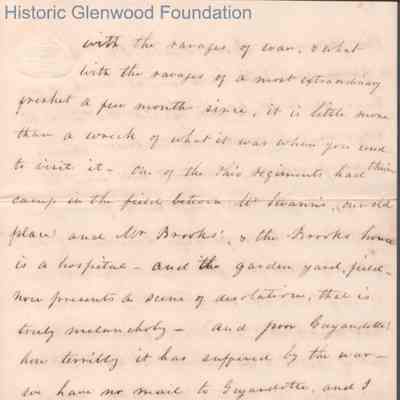 Historic Glenwood Foundation
with the ravages of war, & what
with the ravages of a most extraordinary
freshet a few month since, it is little more
than a wreck of what it was when you used
to visit it – One of the Ohio regiments had their
camp in the field between Mr Swann's, (our old
place) and Mr Brooks', & the Brooks house
is a hospital – and the garden, yard, field –
now presents a scene of desolation, that is
truly melancholy – and poor Guyandotte!
how terribly it has suffered by the war –
we have no mail to Guyandotte, and I